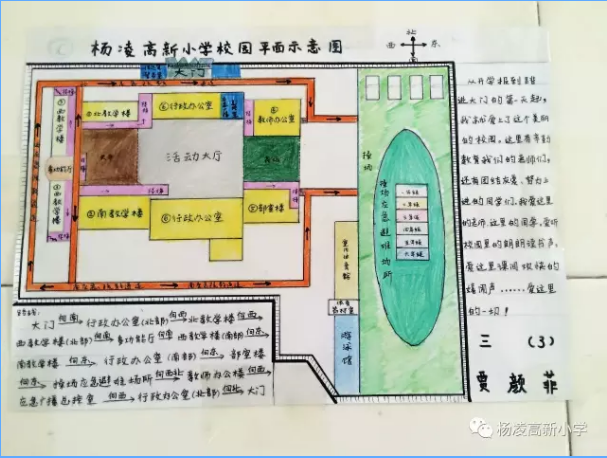 杨凌高新小学校园平面示意图
北
西 东
南
大门
⑥行政办公室
②北教学楼
教师办公室
①西教学楼
活动大厅
多功能厅
①西教学楼
④南教学楼
⑥行政办公室
⑦部室楼
操场
操场应急避难场所
一年级
二年级
三年级
四年级
五年级
六年级
室内体育馆
体育器材室
游泳馆
从开学报到踏
进大门的第一天起,
我就爱上了这个美丽
的校园。这里有辛勤
教育我们的老师们,
还有团结友爱、努力上
进的同学们,我爱这里
的老师,这里的同学,爱听
校园里的朗朗读书声,
爱这里课间欢快的
嬉闹声……爱这里
的一切!
三(3)
贾颜菲
路线:
大门 向南 行政办公室(北部) 向西 北教学楼 向西
西教学楼(北部) 向南 多功能厅 向南 西教学楼(南部) 向东
南教学楼 向东 行政办公室(南部) 向东 部室楼
向东 操场应急避难场所 向西北 教师办公楼 向西
应急广播总控室 向西 行政办公室(北部) 向北 大门
杨凌高新小学